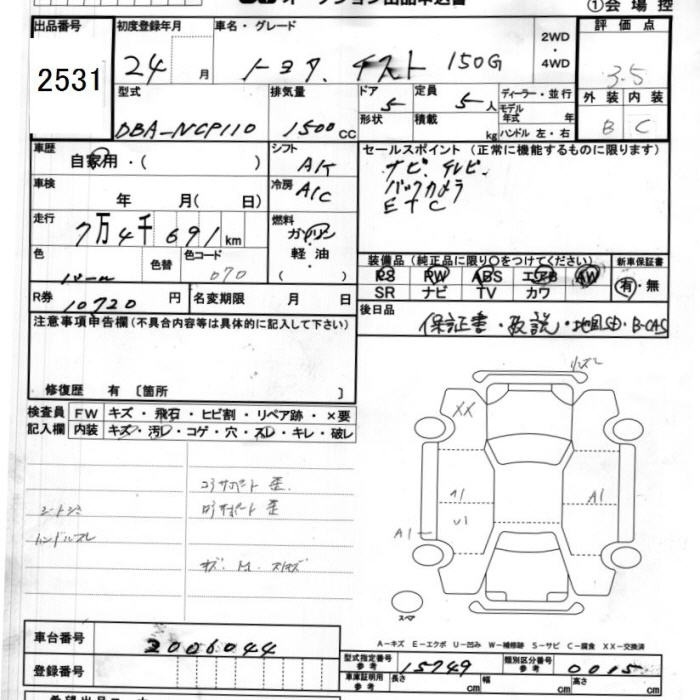 オークション出品申込書
①会場控
出品番号 2531
初度登録年月 24 月
車名・グレード トヨタ イスト 150G
2WD ・ 4WD
評価点 3.5
外装 内装
B C
型式 DBA-NCP110
排気量 1500 CC
ドア 5
定員 5 人
形状
積載 kg
ディーラー・並行
モデル年式 年
ハンドル 左・右
車歴 自家用・( )
シフト A/T
冷房 A/C
車検 年 月( 日)
走行 7万4千691 km
燃料 ガソリン ・ 軽油 ・ ( )
色 パール
色替
カラーコード 070
R券 10720 円
名変期限 月 日
セールスポイント (正常に機能するものに限ります)
ナビ. テレビ.
バックカメラ
ETC
装備品 (純正品に限り○をつけてください)
PS PW ABS エアB AW
SR ナビ TV カワ
新車保証書 有・無
後日品 保証書・取説・地図SD・B-CAS
注意事項申告欄 (不具合内容等は具体的に記入して下さい)
修復歴 有 〔箇所 〕
検査員記入欄
FW キズ・飛石・ヒビ割・リペア跡・×要
内装 キズ・汚レ・コゲ・穴・スレ・キレ・破レ
コアサポート 歪
シートシミ
ロアサポート 歪
ハンドルスレ
XX
A1
A1
スペア
A-キズ E-エクボ U-凹み W-補修跡 S-サビ C-腐食 XX-交換済
車台番号 2006044
登録番号
型式指定番号 参考 15749
類別区分番号 参考 0015
車庫証明用 参考 長さ cm 幅 cm 高さ cm